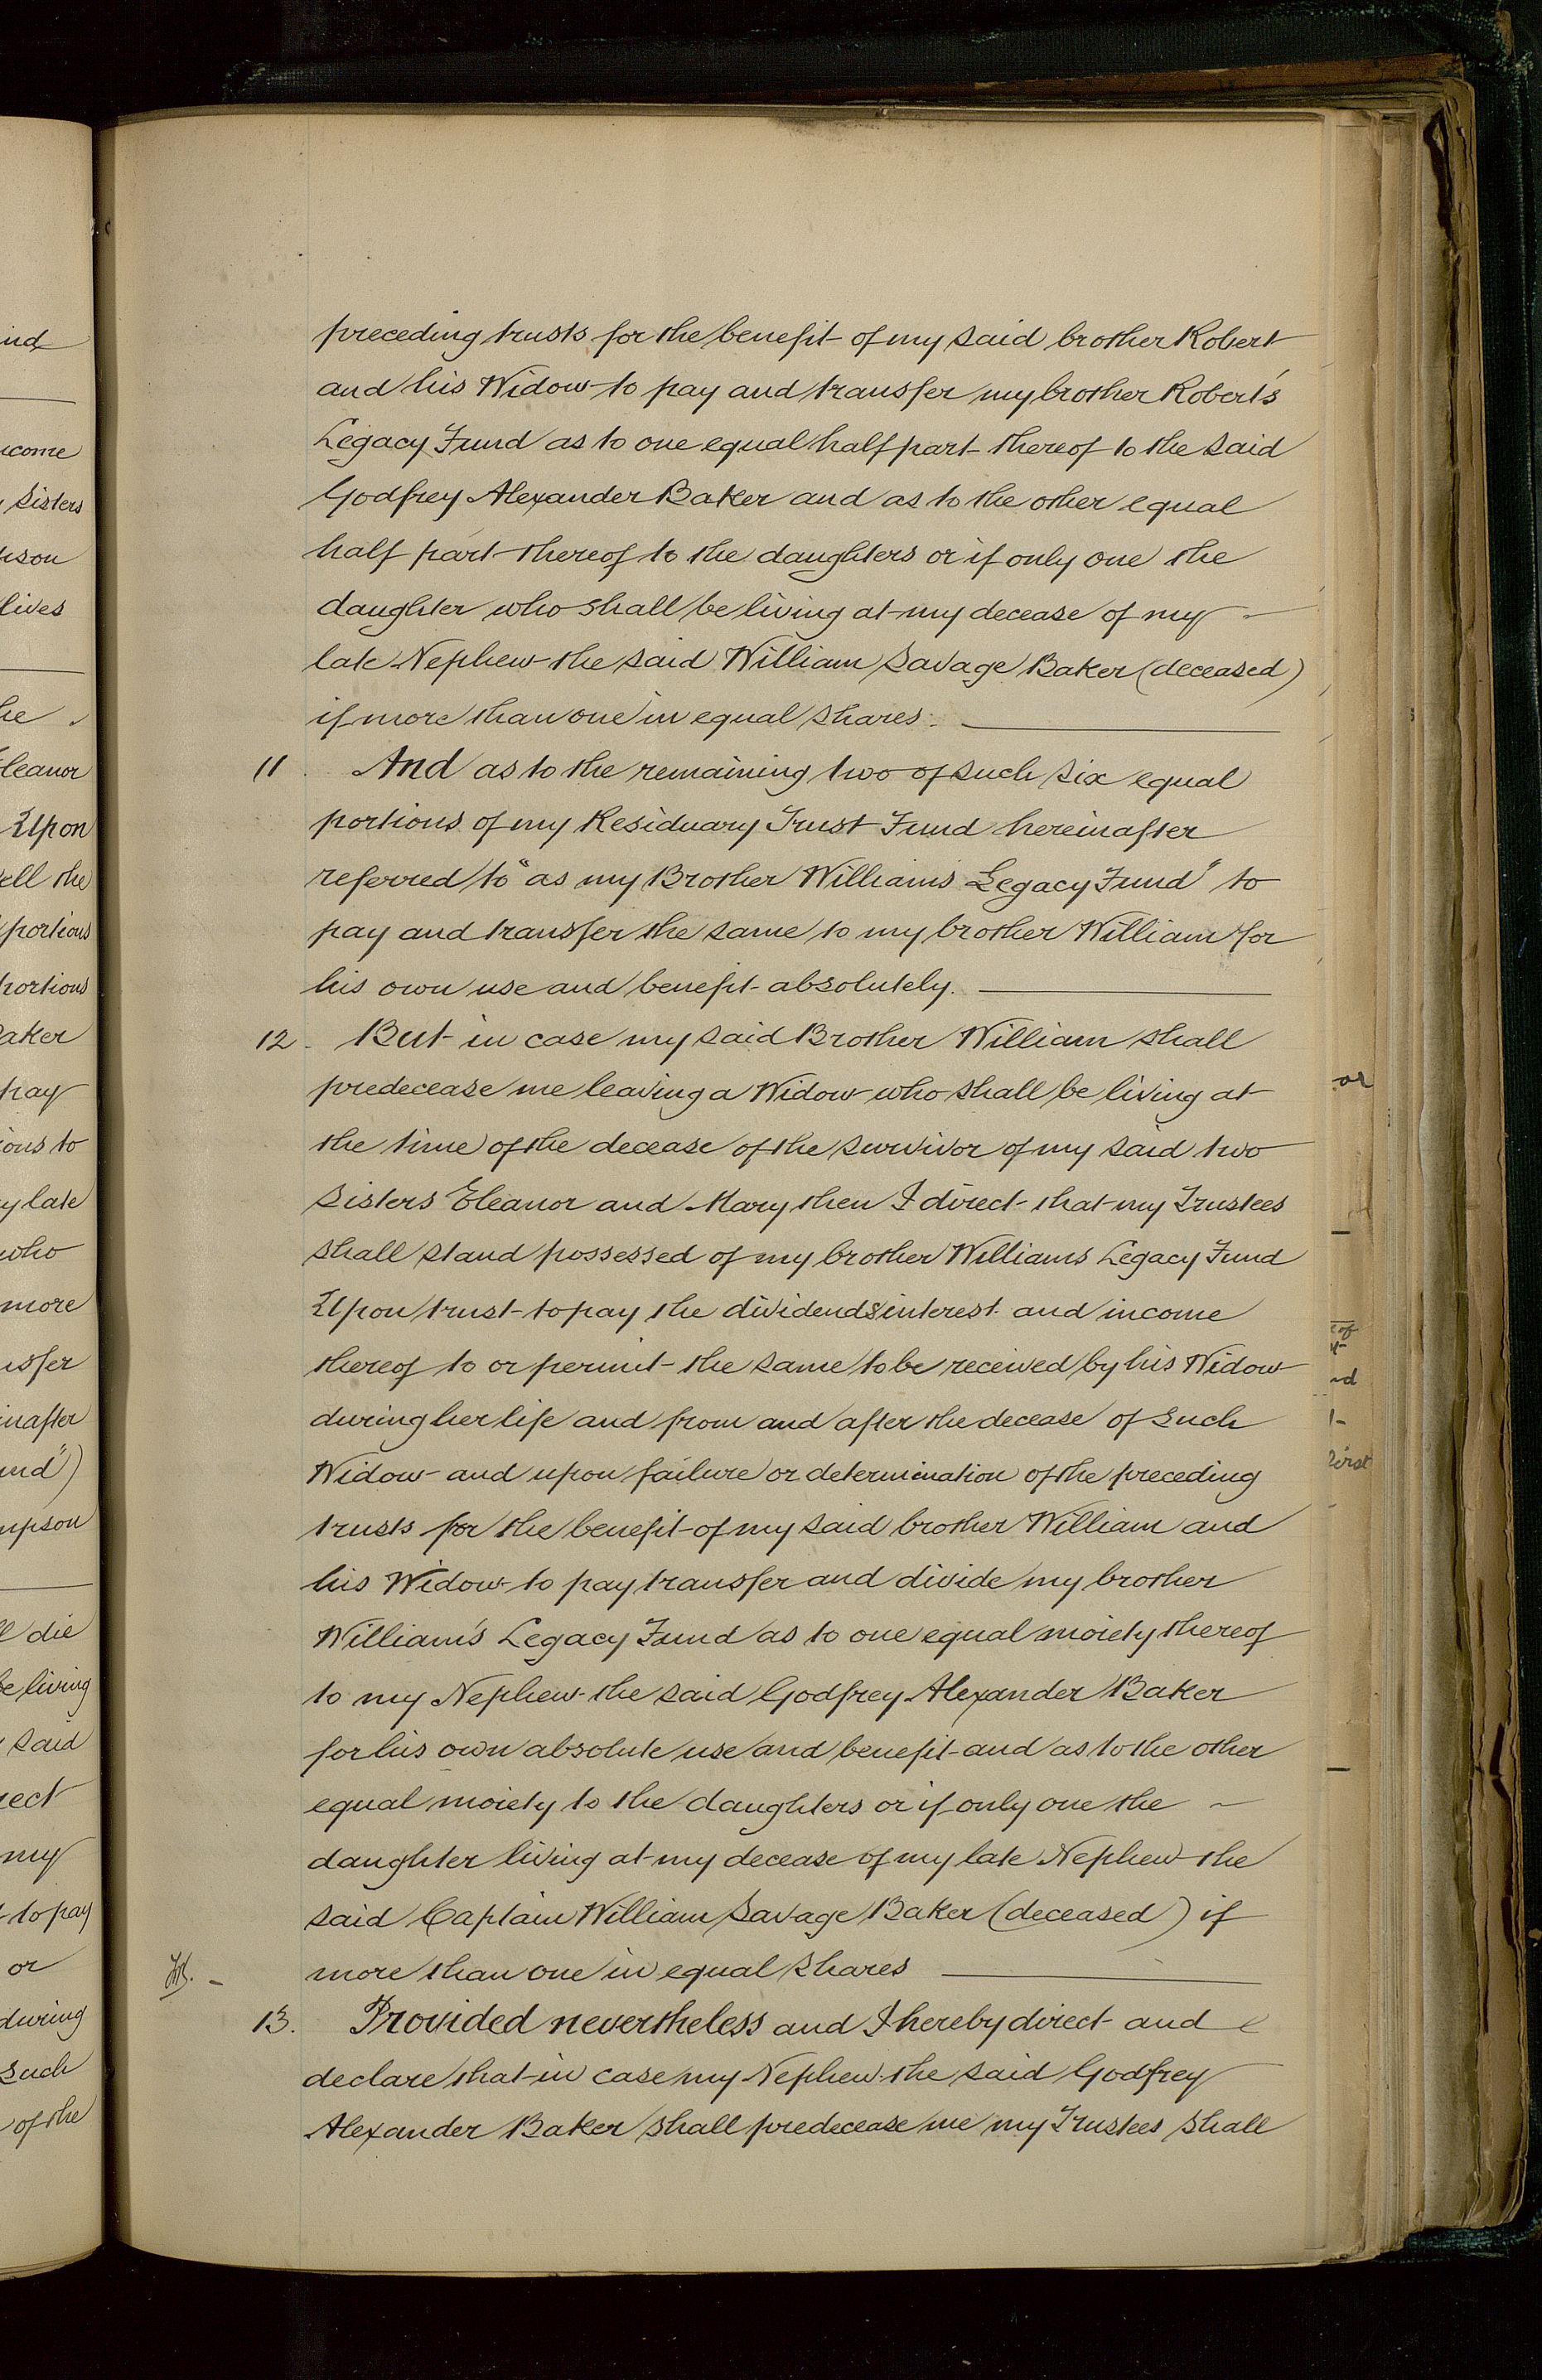 preceding trusts for the benefit of my said brother Robert
and his Widow to pay and transfer my brother Robert's
Legacy Fund as to one equal half part thereof to the said
Godfrey Alexander Baker and as to the other equal
half part thereof to the daughters or if only one the
daughter who shall be living at my decease of my
late Nephew the said William Savage Baker (deceased)
if more than one in equal shares.
11 And as to the remaining two of such six equal
portions of my Residuary Trust Fund hereinafter
referred to "as my Brother William's Legacy Fund" to
pay and transfer the same to my brother William for
his own use and benefit absolutely.
12. But in case my said Brother William shall
predecease me leaving a Widow who shall be living at
the time of the decease of the survivor of my said two
Sisters Eleanor and Mary then I direct that my Trustees
shall stand possessed of my brother Williams Legacy Fund
Upon trust to pay the dividends interest and income
thereof to or permit the same to be received by his Widow
during her life and from and after the decease of such
Widow and upon failure or determination of the preceding
trusts for the benefit of my said brother William and
his Widow to pay transfer and divide my brother
William's Legacy Fund as to one equal moiety thereof
to my Nephew the said Godfrey Alexander Baker
for his own absolute use and benefit and as to the other
equal moiety to the daughters or if only one the
daughter living at my decease of my late Nephew the
said Captain William Savage Baker (deceased) if
more than one in equal shares
13. Provided nevertheless and I hereby direct and
declare that in case my Nephew the said Godfrey
Alexander Baker shall predecease me my Trustees shall